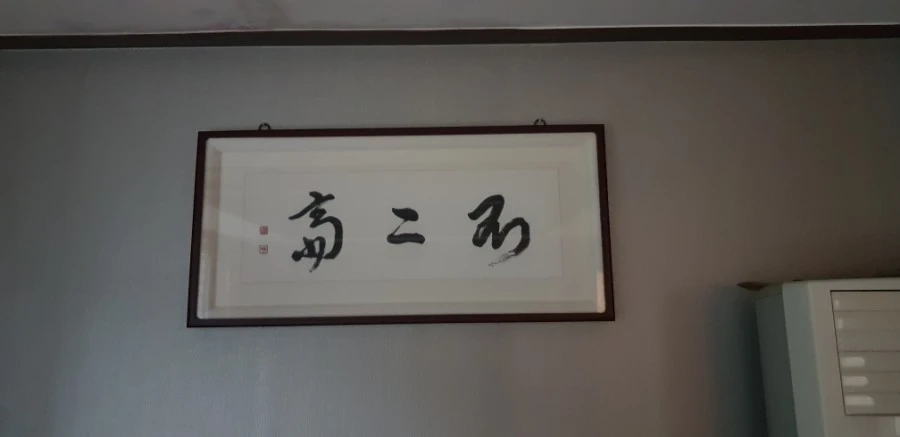 不二齋